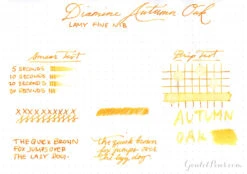 Diamine Autumn Oak
LAMY FINE NIB
Smear Test
Drip Test
5 SECONDS
10 SECONDS
20 SECONDS
30 SECONDS
XXXXXXXXXX
AUTUMN
OAK
THE QUICK BROWN
FOX JUMPS OVER
THE LAZY DOG.
the quick brown
fox jumps over
the lazy dog.
GouletPens.com